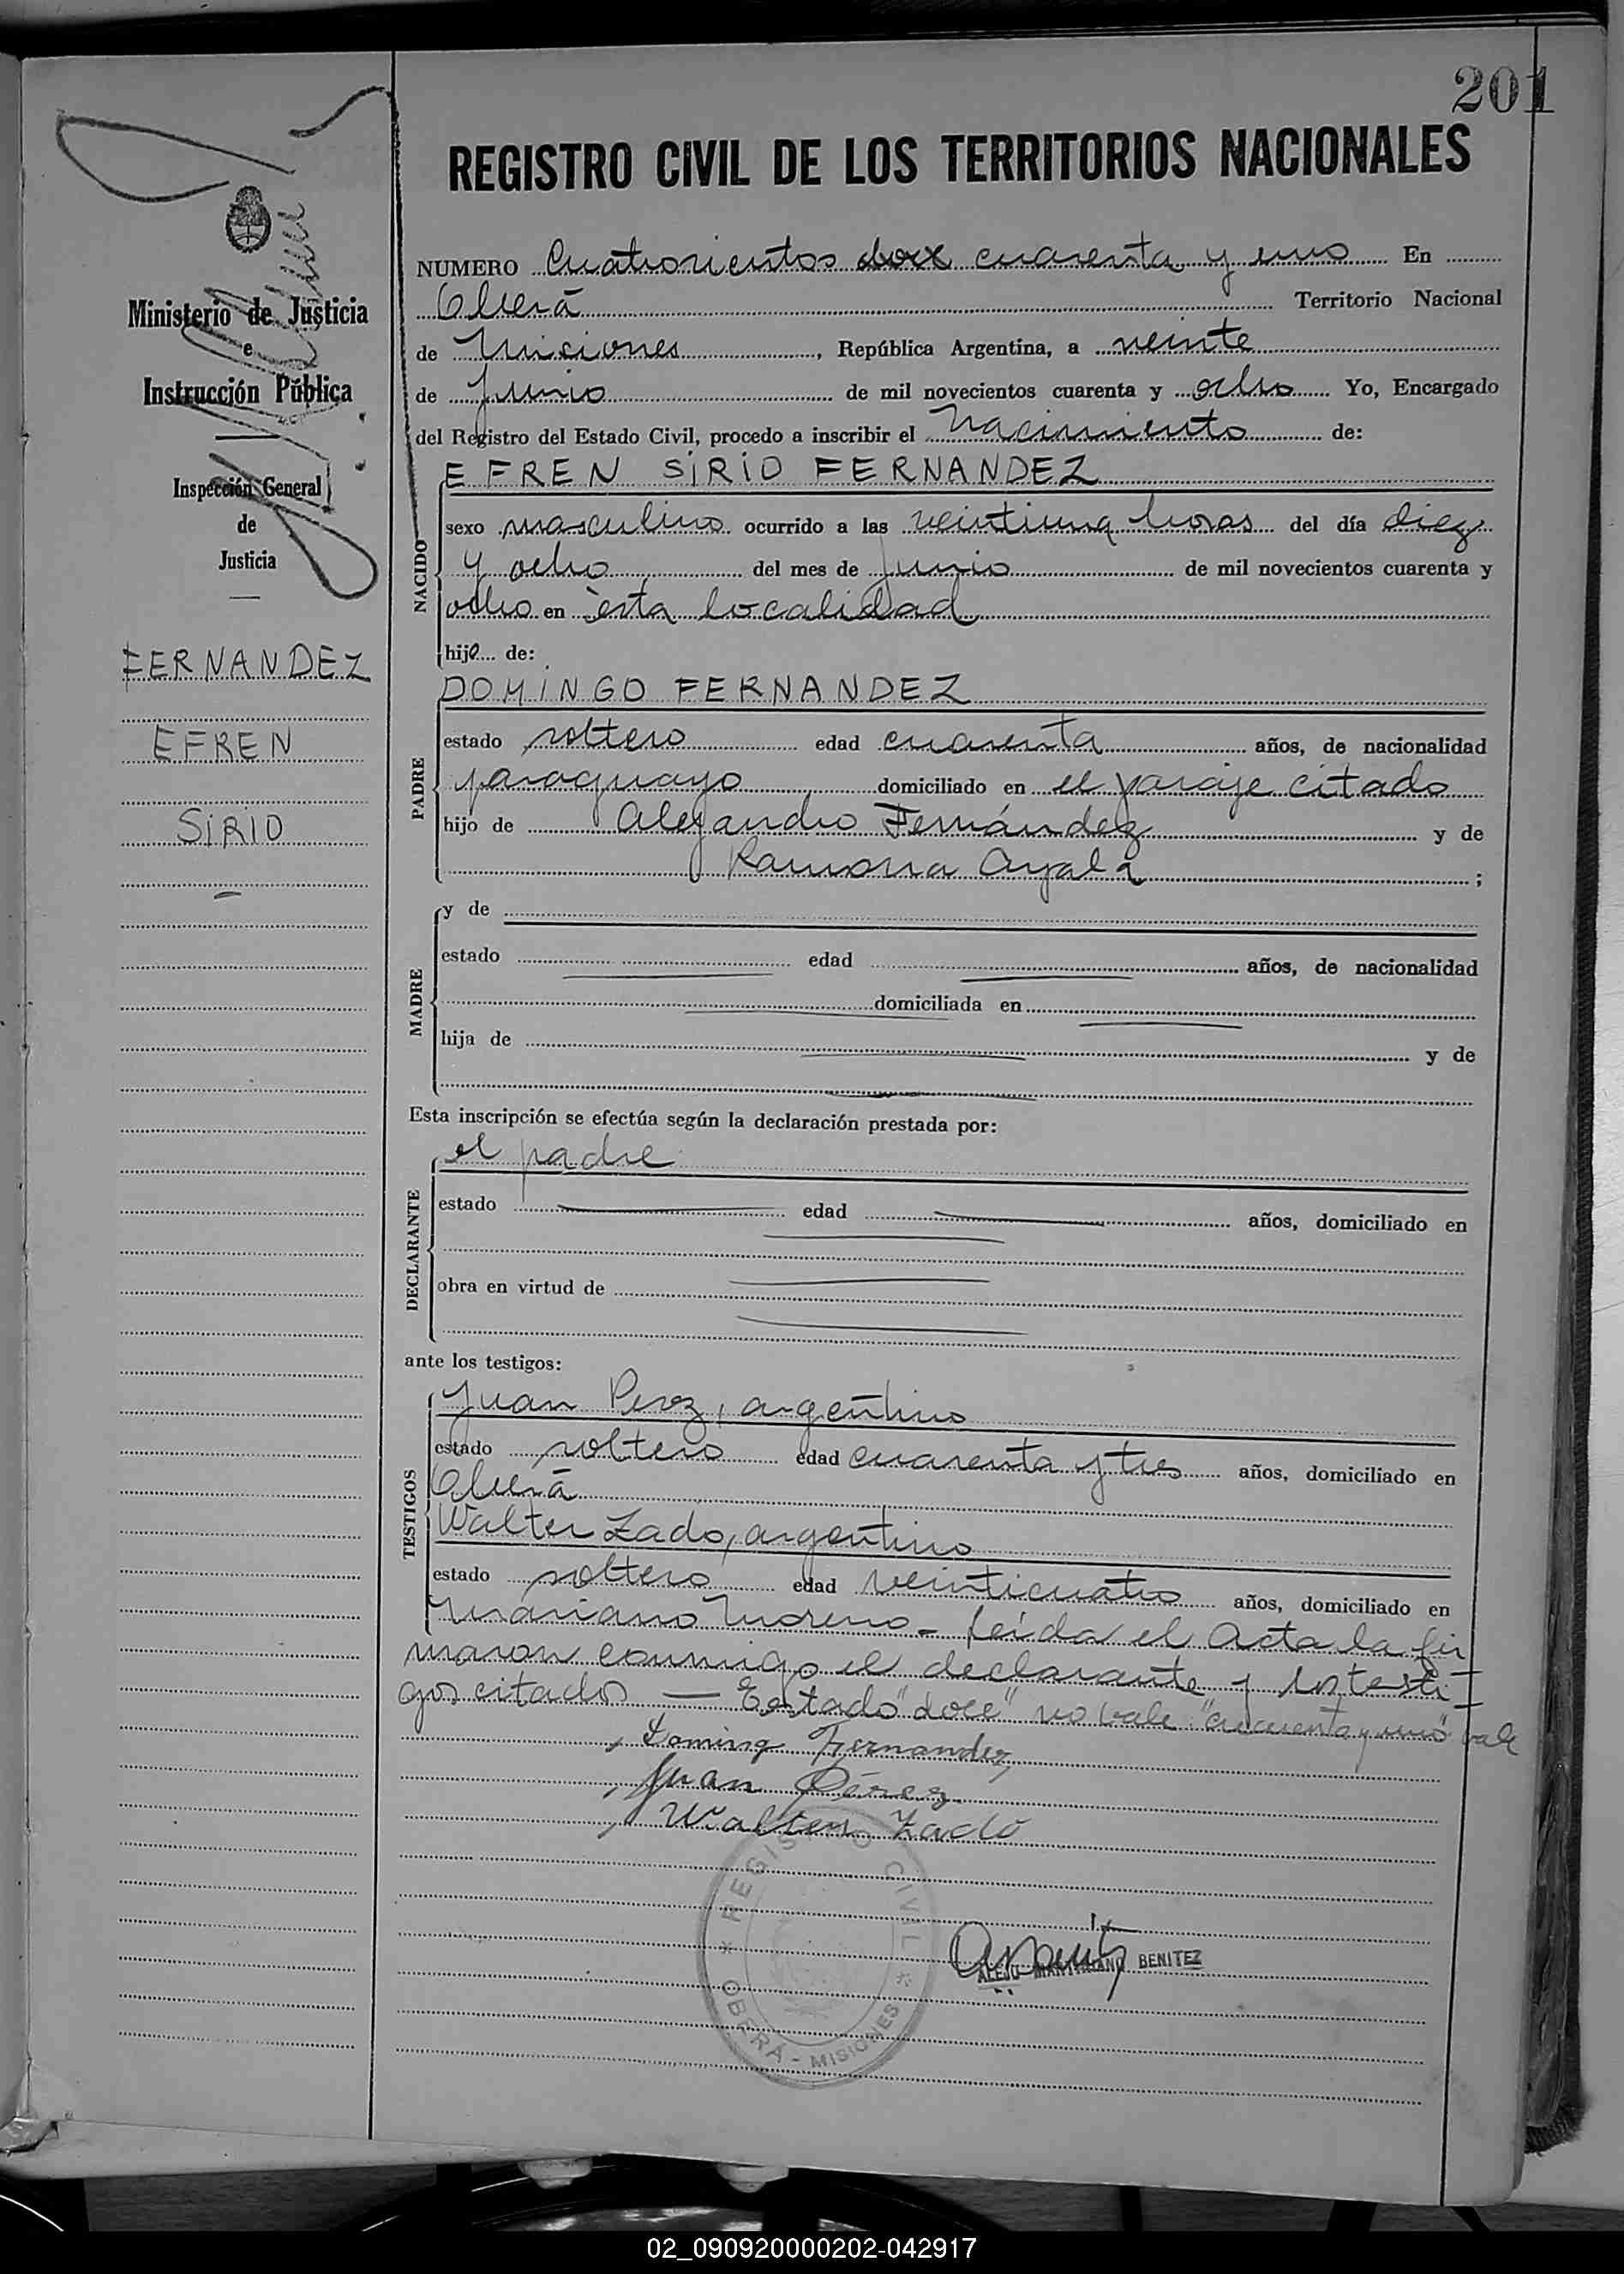 201
REGISTRO CIVIL DE LOS TERRITORIOS NACIONALES
Ministerio de Justicia
e
Instrucción Pública
Inspección General
de
Justicia
FERNANDEZ
EFREN
SIRIO
NUMERO Cuatrocientos doce cuarenta y uno En
Oberá Territorio Nacional
de Misiones, República Argentina, a veinte
de Junio de mil novecientos cuarenta y ocho Yo, Encargado
del Registro del Estado Civil, procedo a inscribir el Nacimiento de:
NACIDO
EFREN SIRIO FERNANDEZ
sexo masculino ocurrido a las veintiuna horas del día diez
y ocho del mes de Junio de mil novecientos cuarenta y
ocho en ésta localidad
hijo de:
PADRE
DOMINGO FERNANDEZ
estado soltero edad cuarenta años, de nacionalidad
paraguayo domiciliado en el paraje citado
hijo de Alejandro Fernández y de
Ramona Ayala ;
MADRE
y de
estado edad años, de nacionalidad
domiciliada en
hija de y de
Esta inscripción se efectúa según la declaración prestada por:
DECLARANTE
el padre
estado edad años, domiciliado en
obra en virtud de
ante los testigos:
TESTIGOS
Juan Perez, argentino
estado soltero edad cuarenta y tres años, domiciliado en
Oberá
Walter Zado, argentino
estado soltero edad veinticuatro años, domiciliado en
Mariano Moreno - Leída el Acta la fir
maron conmigo el declarante y los testi-
gos citados — Estado "doce" no vale "cuarenta y uno" vale
Doming Fernandez
Juan Pérez
Walter Zado
REGISTRO CIVIL * OBERA - MISIONES *
BENITEZ
02_090920000202-042917